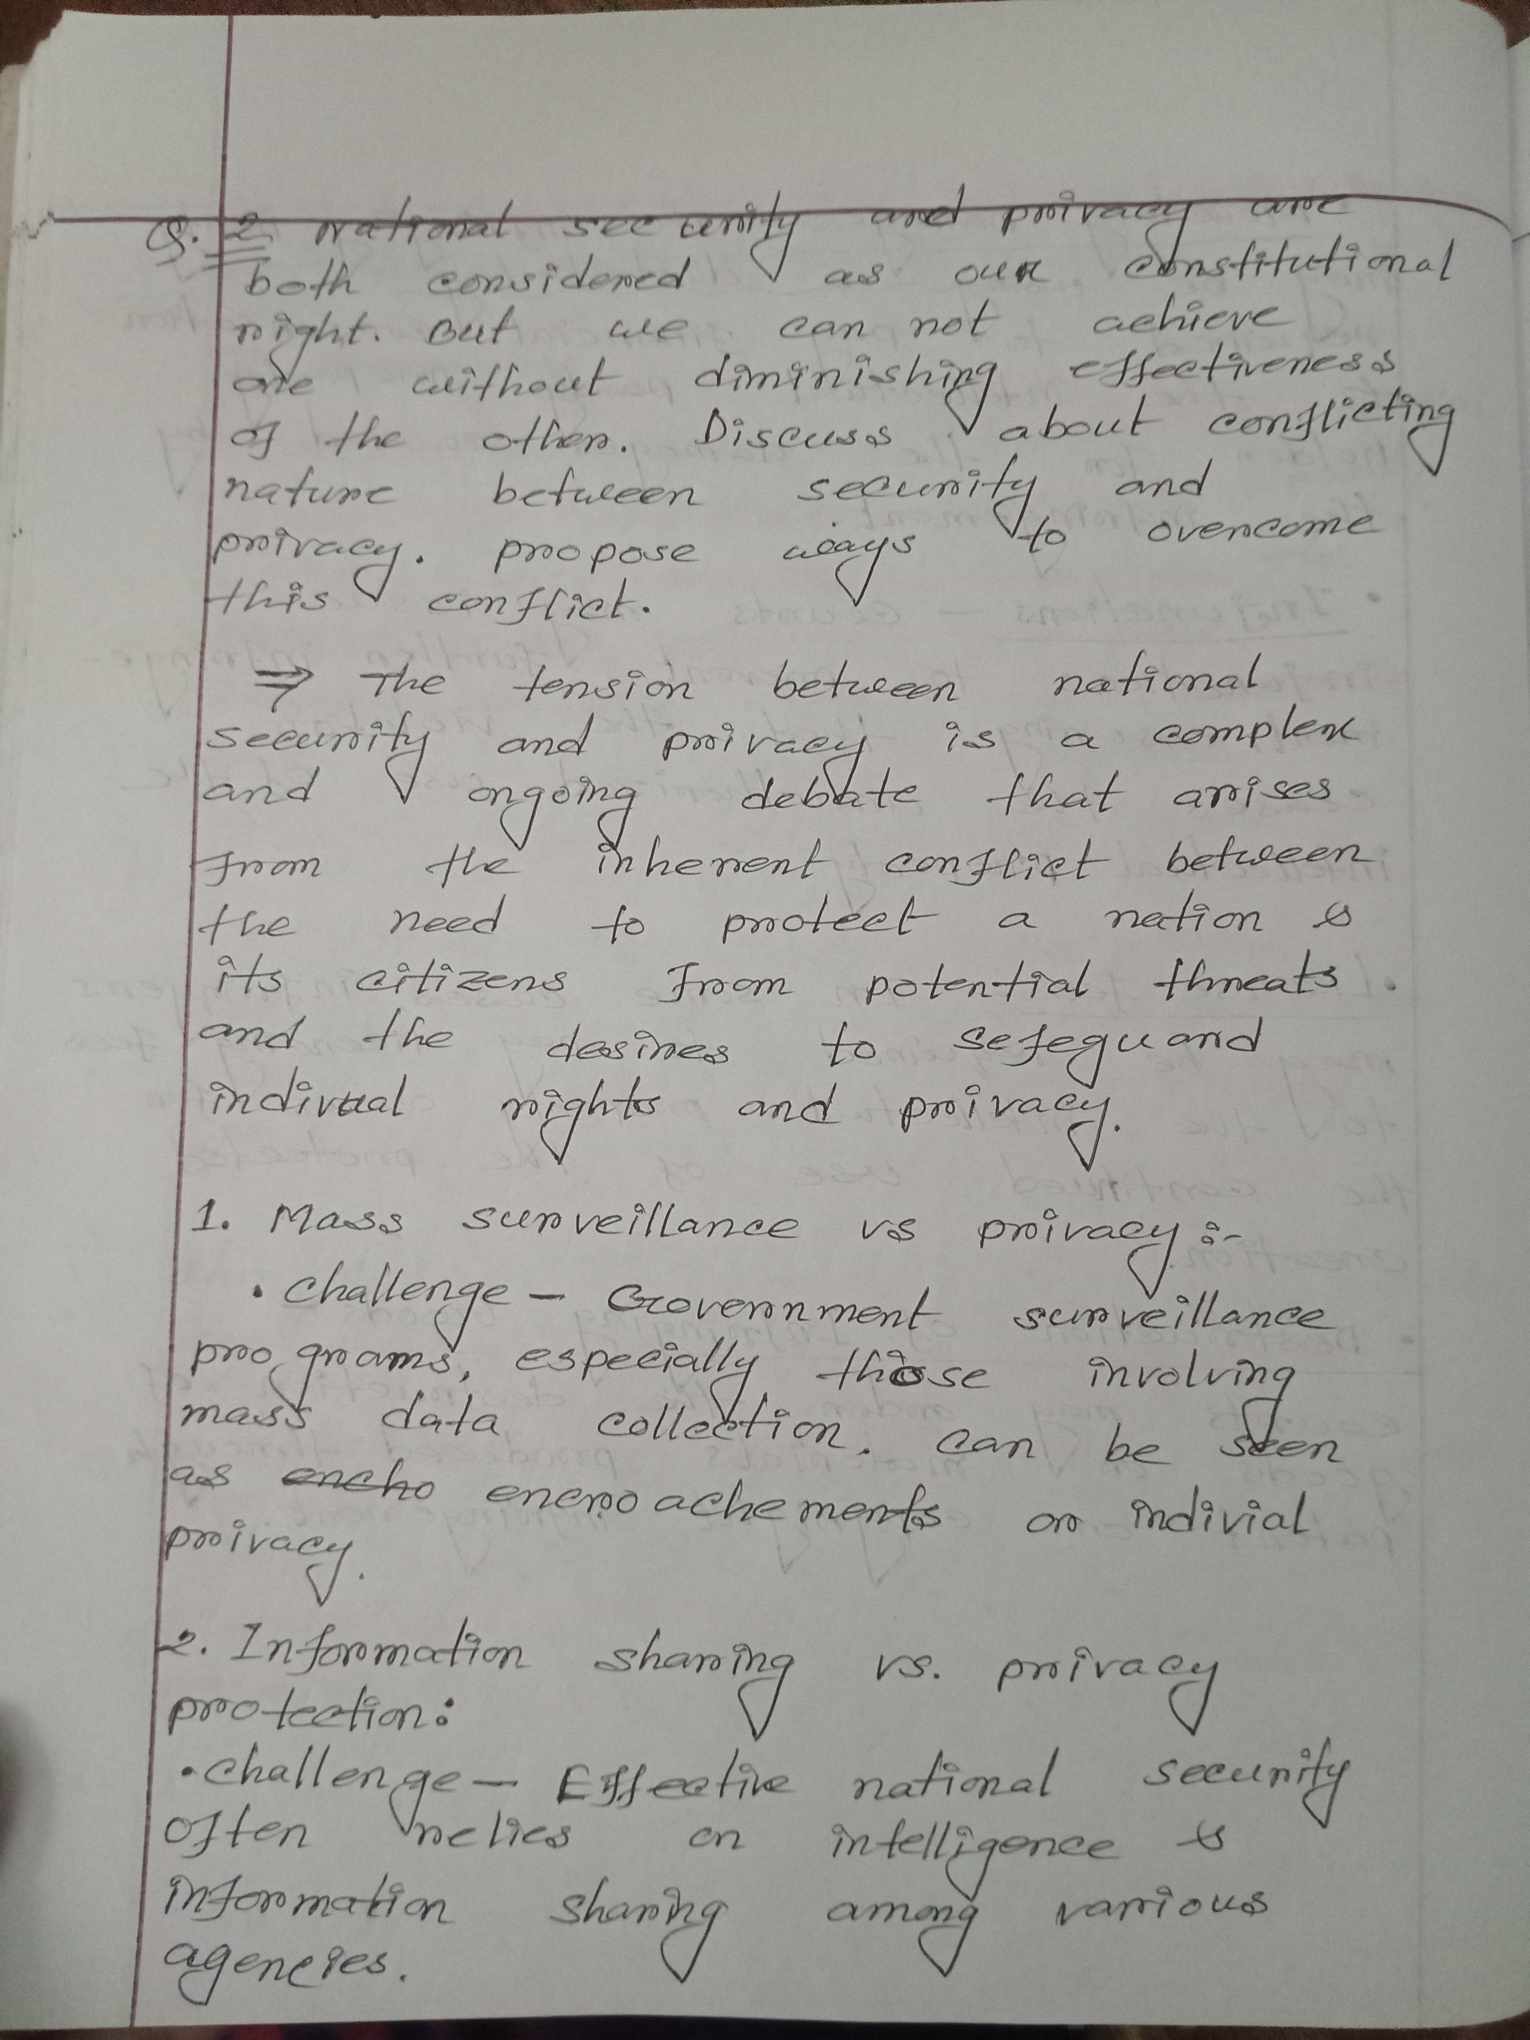 Q. 2 National security and privacy are
both considered as our constitutional
right. But we can not achieve
one without diminishing effectiveness
of the other. Discuss about conflicting
nature between security and
privacy. propose ways to overcome
this conflict.
⇒ The tension between national
security and privacy is a complex
and ongoing debate that arises
from the inherent conflict between
the need to protect a nation &
its citizens from potential threats.
and the desires to sefeguard
indivual rights and privacy.
1. Mass surveillance vs privacy :-
• challenge – Government surveillance
programs, especially those involving
mass data collection. can be seen
as encho encroachements on indivial
privacy.
2. Information sharing vs. privacy
protection:
• challenge – Effective national security
often relies on intelligence &
information sharing among various
agencies.